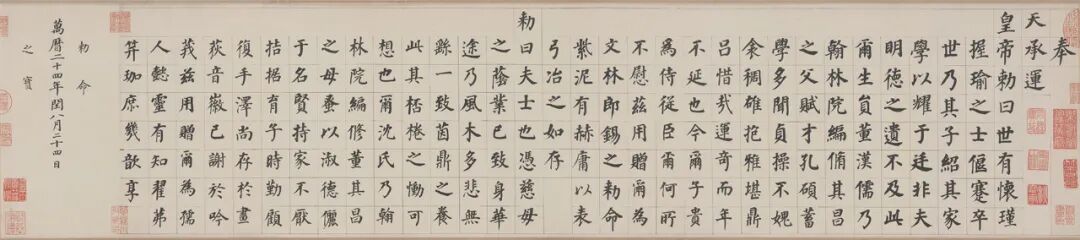 奉
天承運
皇帝勅曰世有懷瑾
握瑜之士偃蹇卒
世乃其子紹其家
學以耀于廷非夫
明德之遺不及此
爾生員董漢儒乃
翰林院編脩其昌
之父賦才孔碩蓄
學多聞貞操不媿
衾裯雄抱雅堪鼎
呂惜哉運奇而年
不延也今爾子貴
為侍從臣爾何所
不慰茲用贈爾為
文林郎錫之勅命
紫泥有赫庸以表
弓冶之如存
勅曰夫士也憑慈母
之蔭業已致身華
途乃風木多悲無
繇一致茵鼎之養
此其栝棬之慟可
想也爾沈氏乃翰
林院編修董其昌
之母蚤以淑德儷
于名賢持家不厭
拮据育子時勤顧
復手澤尚存於畫
荻音徽已謝於吟
莪茲用贈爾為孺
人懿靈有知翟茀
笄珈庶幾歆享
勅命
萬曆二十四年閏八月二十四日
之寶